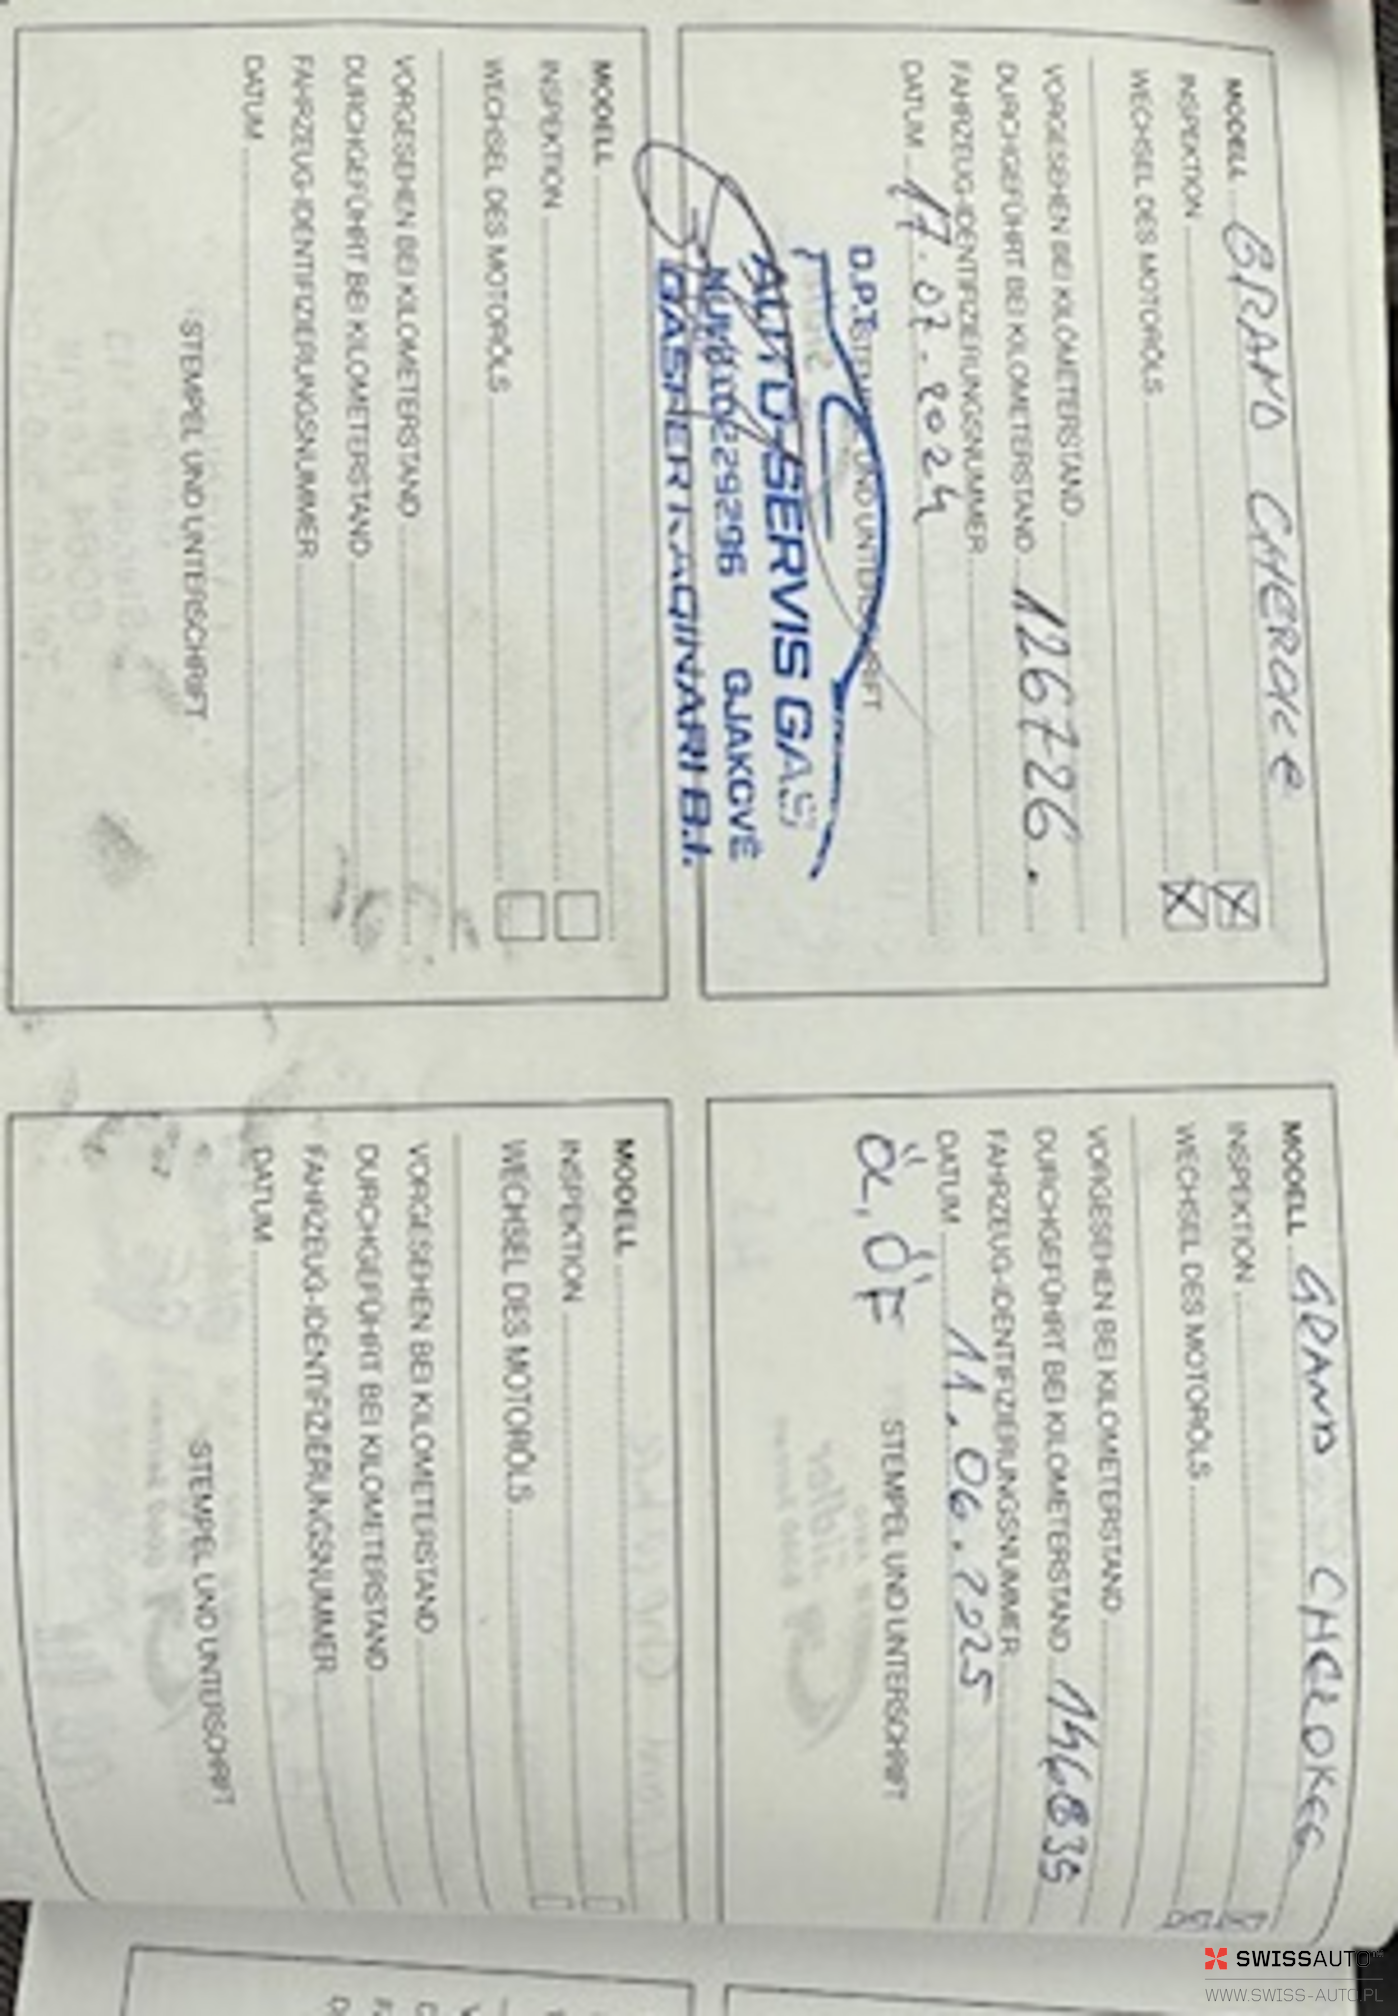 MODELL GRAND CHEROKEE
INSPEKTION
WECHSEL DES MOTORÖLS
VORGESEHEN BEI KILOMETERSTAND
DURCHGEFÜHRT BEI KILOMETERSTAND 126726.
FAHRZEUG-IDENTIFIZIERUNGSNUMMER
DATUM 17.07.2024
D.P.T. STEMPEL UND UNTERSCHRIFT
AUTO-SERVIS GAS
GJAKOVË
GASPER KAQINARI B.I.
MODELL
INSPEKTION
WECHSEL DES MOTORÖLS
VORGESEHEN BEI KILOMETERSTAND
DURCHGEFÜHRT BEI KILOMETERSTAND
FAHRZEUG-IDENTIFIZIERUNGSNUMMER
DATUM
STEMPEL UND UNTERSCHRIFT
MODELL GRAND CHEROKEE
INSPEKTION
WECHSEL DES MOTORÖLS
VORGESEHEN BEI KILOMETERSTAND
DURCHGEFÜHRT BEI KILOMETERSTAND
FAHRZEUG-IDENTIFIZIERUNGSNUMMER
DATUM 11.06.2025
STEMPEL UND UNTERSCHRIFT
MODELL
INSPEKTION
WECHSEL DES MOTORÖLS
VORGESEHEN BEI KILOMETERSTAND
DURCHGEFÜHRT BEI KILOMETERSTAND
FAHRZEUG-IDENTIFIZIERUNGSNUMMER
DATUM
STEMPEL UND UNTERSCHRIFT
SWISSAUTO
WWW.SWISS-AUTO.PL